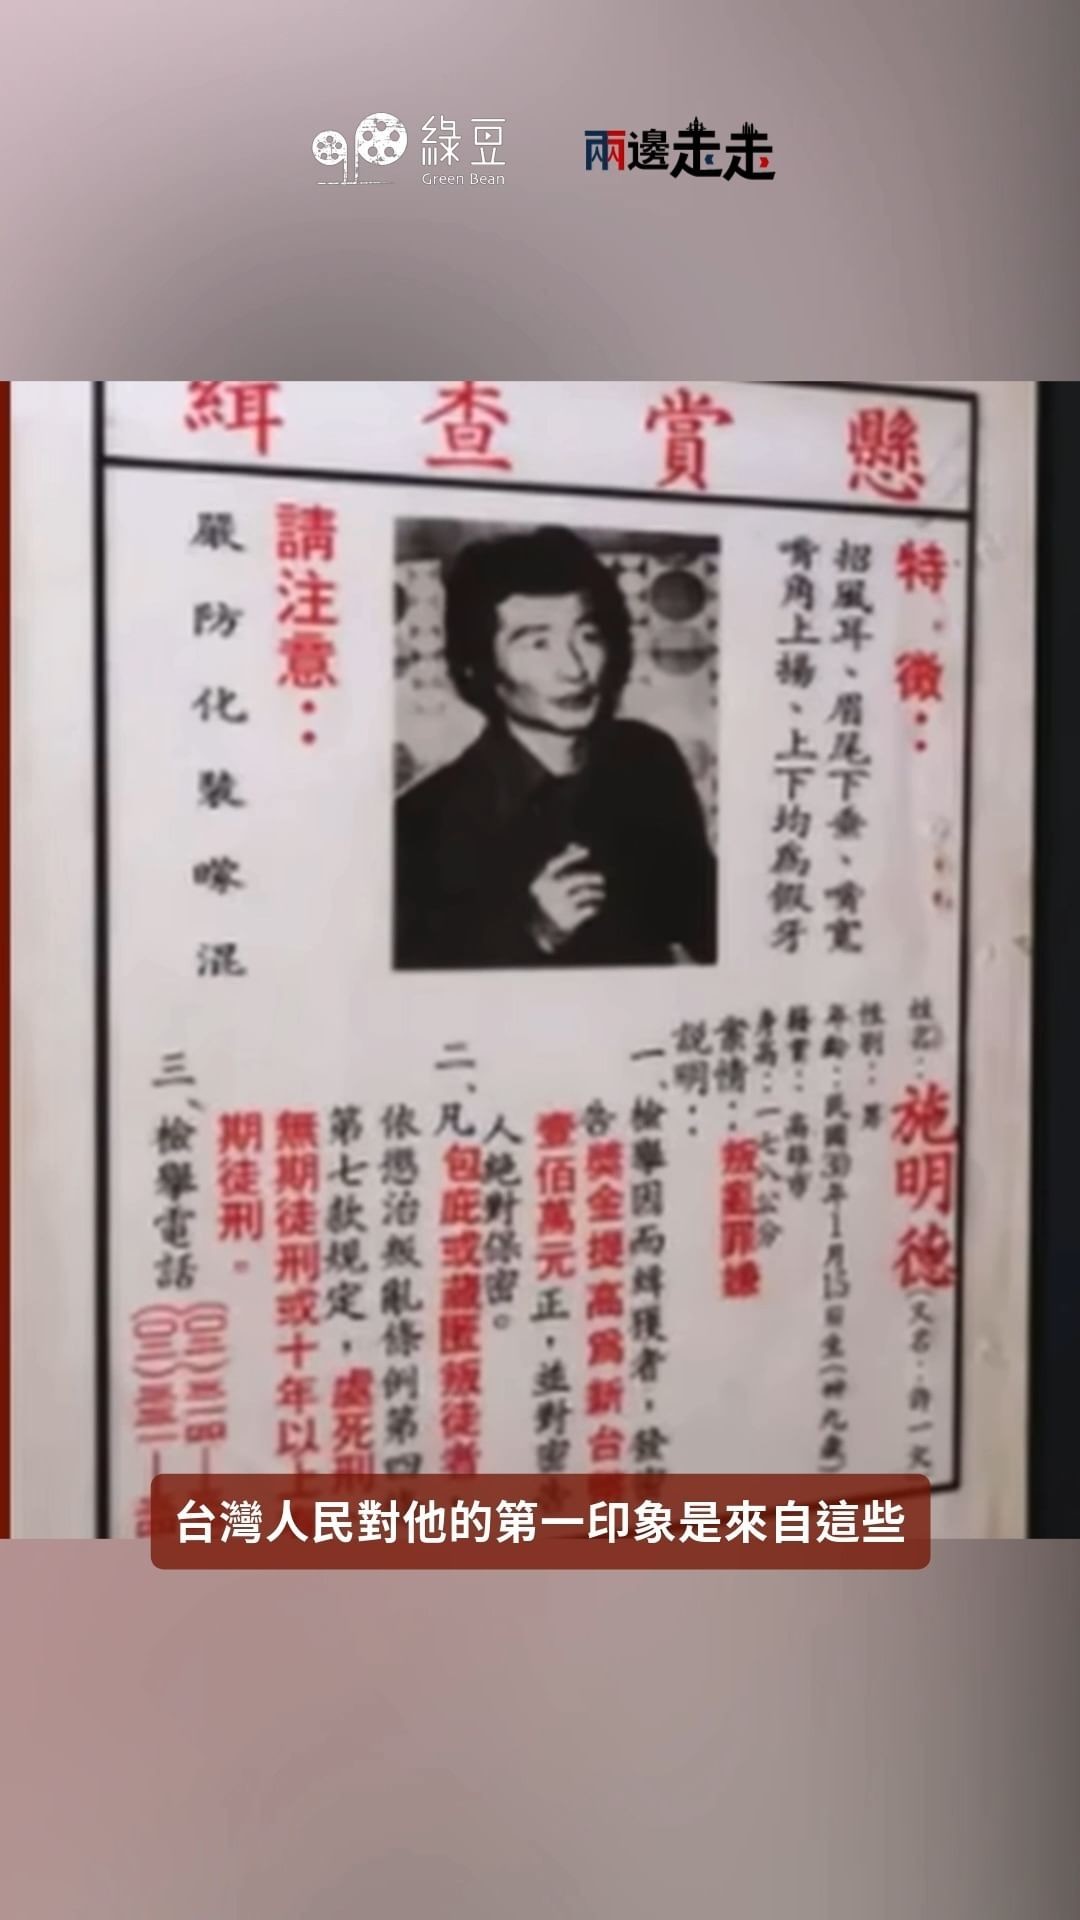 綠豆
Green Bean
兩邊走走
懸賞查緝
特徵：
招風耳、眉尾下垂、嘴寬
嘴角上揚、上下均為假牙
請注意：
嚴防化裝矇混
姓名：施明德（又名：許一文
性別：男
年齡：民國30年1月15日生（卅九歲）
籍貫：高雄市
身高：一七八公分
案情：叛亂罪嫌
說明：
一、檢舉因而緝獲者，發
告獎金提高為新台
壹佰萬元正，並對密
人絕對保密。
二、凡包庇或藏匿叛徒者
依懲治叛亂條例第四
第七款規定，處死刑
無期徒刑或十年以上
期徒刑。
三、檢舉電話
台灣人民對他的第一印象是來自這些